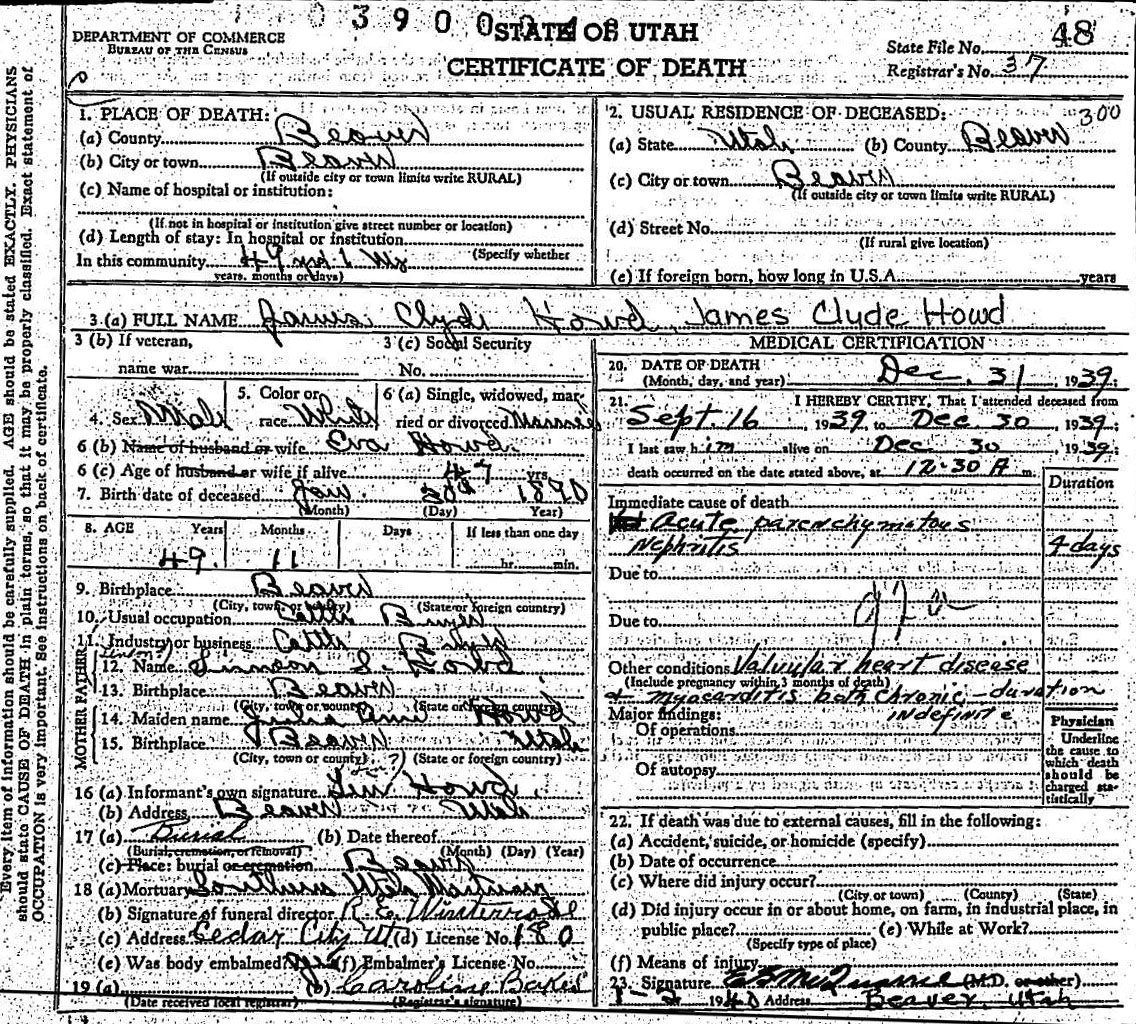 3 9 0 0
48
DEPARTMENT OF COMMERCE
BUREAU OF THE CENSUS
STATE OF UTAH
CERTIFICATE OF DEATH
State File No.
Registrar's No. 37
Every item of information should be carefully supplied. AGE should be stated EXACTLY. PHYSICIANS
should state CAUSE OF DEATH in plain terms, so that it may be properly classified. Exact statement of
OCCUPATION is very important. See instructions on back of certificate.
1. PLACE OF DEATH:
(a) County Beaver
(b) City or town Beaver
(If outside city or town limits write RURAL)
(c) Name of hospital or institution:
(If not in hospital or institution give street number or location)
(d) Length of stay: In hospital or institution
(Specify whether
In this community 49
years, months or days)
2. USUAL RESIDENCE OF DECEASED: 300
(a) State Utah (b) County Beaver
(c) City or town Beaver
(If outside city or town limits write RURAL)
(d) Street No.
(If rural give location)
(e) If foreign born, how long in U.S.A. years
3 (a) FULL NAME James Clyde Howd, James Clyde Howd
3 (b) If veteran,
name war
3 (c) Social Security
No.
4. Sex Male
5. Color or
race White
6 (a) Single, widowed, mar-
ried or divorced Married
6 (b) Name of husband or wife Eva Howd
6 (c) Age of husband or wife if alive 47 yrs.
7. Birth date of deceased Jan. 1890
(Month) (Day) Year)
8. AGE Years Months Days If less than one day
49. 11 hr. min.
9. Birthplace Beaver
(City, town, or county) (State or foreign country)
10. Usual occupation Cattle Buyer
11. Industry or business Cattle Buyer
FATHER
12. Name Howd
13. Birthplace Beaver
(City, town or county) (State or foreign country)
MOTHER
14. Maiden name Julia Howd
15. Birthplace Beaver Utah
(City, town or county) (State or foreign country)
16 (a) Informant's own signature Howd
(b) Address Beaver Utah
17 (a) Burial (b) Date thereof
(Burial, cremation, or removal) (Month) (Day) (Year)
(c) Place: burial or cremation Beaver
18 (a) Mortuary Southern Utah Mortuary
(b) Signature of funeral director
(c) Address Cedar City Ut (d) License No. 180
(e) Was body embalmed? Yes (f) Embalmer's License No.
19 (a) (b) Caroline
(Date received local registrar) (Registrar's signature)
MEDICAL CERTIFICATION
20. DATE OF DEATH
(Month, day, and year) Dec. 31, 1939.
21. I HEREBY CERTIFY, That I attended deceased from
Sept. 16, 1939 to Dec 30, 1939.
I last saw him alive on Dec 30 1939.
death occurred on the date stated above, at 12-30 A m.
Duration
Immediate cause of death
Acute parenchymatous
Nephritis 4 days
Due to
Due to
Other conditions Valvular heart disease
(Include pregnancy within 3 months of death)
+ myocarditis both chronic - duration
indefinite
Major findings:
Of operations
Of autopsy
Physician
Underline
the cause to
which death
should be
charged sta-
tistically
22. If death was due to external causes, fill in the following:
(a) Accident, suicide, or homicide (specify)
(b) Date of occurrence
(c) Where did injury occur?
(City or town) (County) (State)
(d) Did injury occur in or about home, on farm, in industrial place, in
public place? (e) While at Work?
(Specify type of place)
(f) Means of injury
23. Signature (M.D. or other)
1-2 1940 Address Beaver, Utah